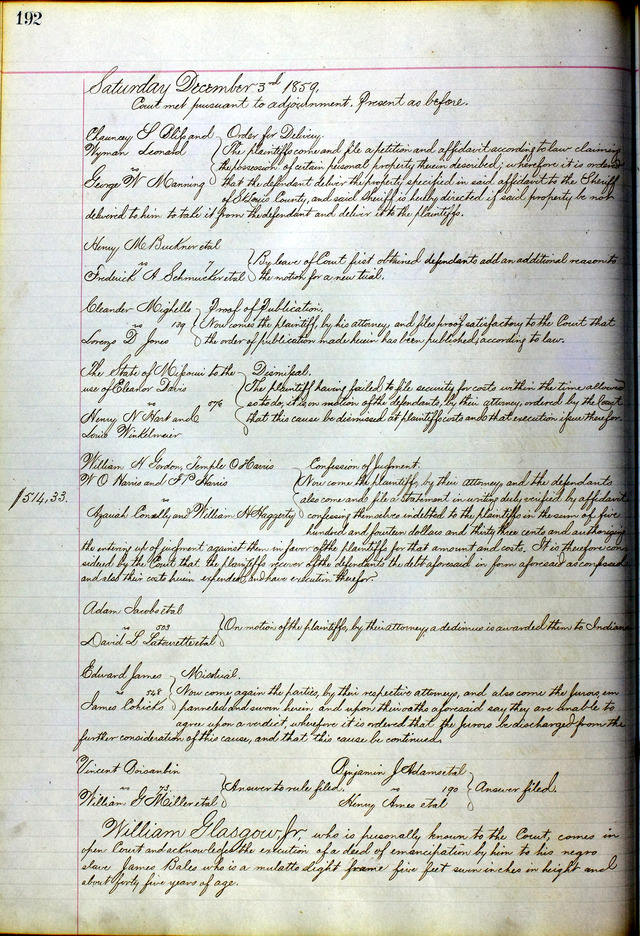 192
Saturday December 3rd 1859.
Court met pursuant to adjournment. Present as before.
Chauncey S Bliss and Wyman Leonard
vs
George W Manning
Order for Delivery.
The plaintiffs come and file a petition and affidavit according to law claiming
the possession of certain personal property therein described; wherefore it is ordered
that the defendant deliver the property specified in said affidavit to the Sheriff
of St Louis County, and said Sheriff is hereby directed if said property be not
delivered to him to take it from the defendant and deliver it to the plaintiffs.
Henry M Buckner etal
vs 7
Frederick A Schmucker etal
By leave of Court first obtained defendants add an additional reason to
the motion for a new trial.
Cleander Mighells
vs 139
Lorenzo D Jones
Proof of Publication.
Now comes the plaintiff, by his attorney, and files proof satisfactory to the Court that
the order of publication made herein has been published according to law.
The State of Missouri to the
use of Eleanor Davis
vs 076
Henry N Hart and
Louis Winkelmeier
Dismissal.
The plaintiff having failed to file security for costs within the time allowed
so to do, it is on motion of the defendants, by their attorney, ordered by the Court
that this cause be dismissed at plaintiffs costs and that execution issue therefor.
William H Gordon, Temple O Harris
W O Harris and Harris
vs
Azariah Conally and William H Haggerty
Confession of Judgment.
$514,33.
Now come the plaintiffs, by their attorney, and the defendants
also come and file a statement in writing duly verified by affidavit
confessing themselves indebted to the plaintiffs in the sum of five
hundred and fourteen dollars and thirty three cents and authorising
the entering up of judgment against them in favor of the plaintiffs for that amount and costs. It is therefore con
sidered by the Court that the plaintiffs recover of the defendants the debt aforesaid in form aforesaid as confessed
and also their costs herein expended and have execution therefor.
Adam Jacobs etal
vs 503
David L etal
On motion of the plaintiffs, by their attorney, a dedimus is awarded them to Indiana
Edward James
vs 548
James Cohick
Mistrial.
Now come again the parties, by their respective attorneys, and also come the Jurors, em
panneled and sworn herein and upon their oaths aforesaid say they are unable to
agree upon a verdict, wherefore it is ordered that the Jurors be discharged from the
further consideration of this cause, and that this cause be continued.
Vincent Boisaubin
vs 73
William G Miller etal
Answer to rule filed.
Benjamin J Adams etal
vs 190
Henry Ames etal
Answer filed.
William Glasgow, Jr, who is personally known to the Court, comes in
open Court and acknowledges the execution of a deed of emancipation by him to his negro
slave James Bales who is a mulatto slight frame five feet seven inches in height and
about forty five years of age.